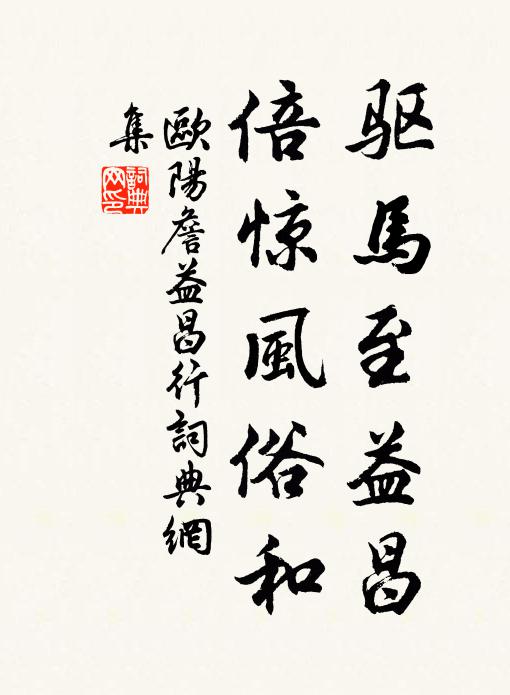 驱馬至益昌
倍惊風俗和
歐陽詹益昌行詞典網
集
詞典网印